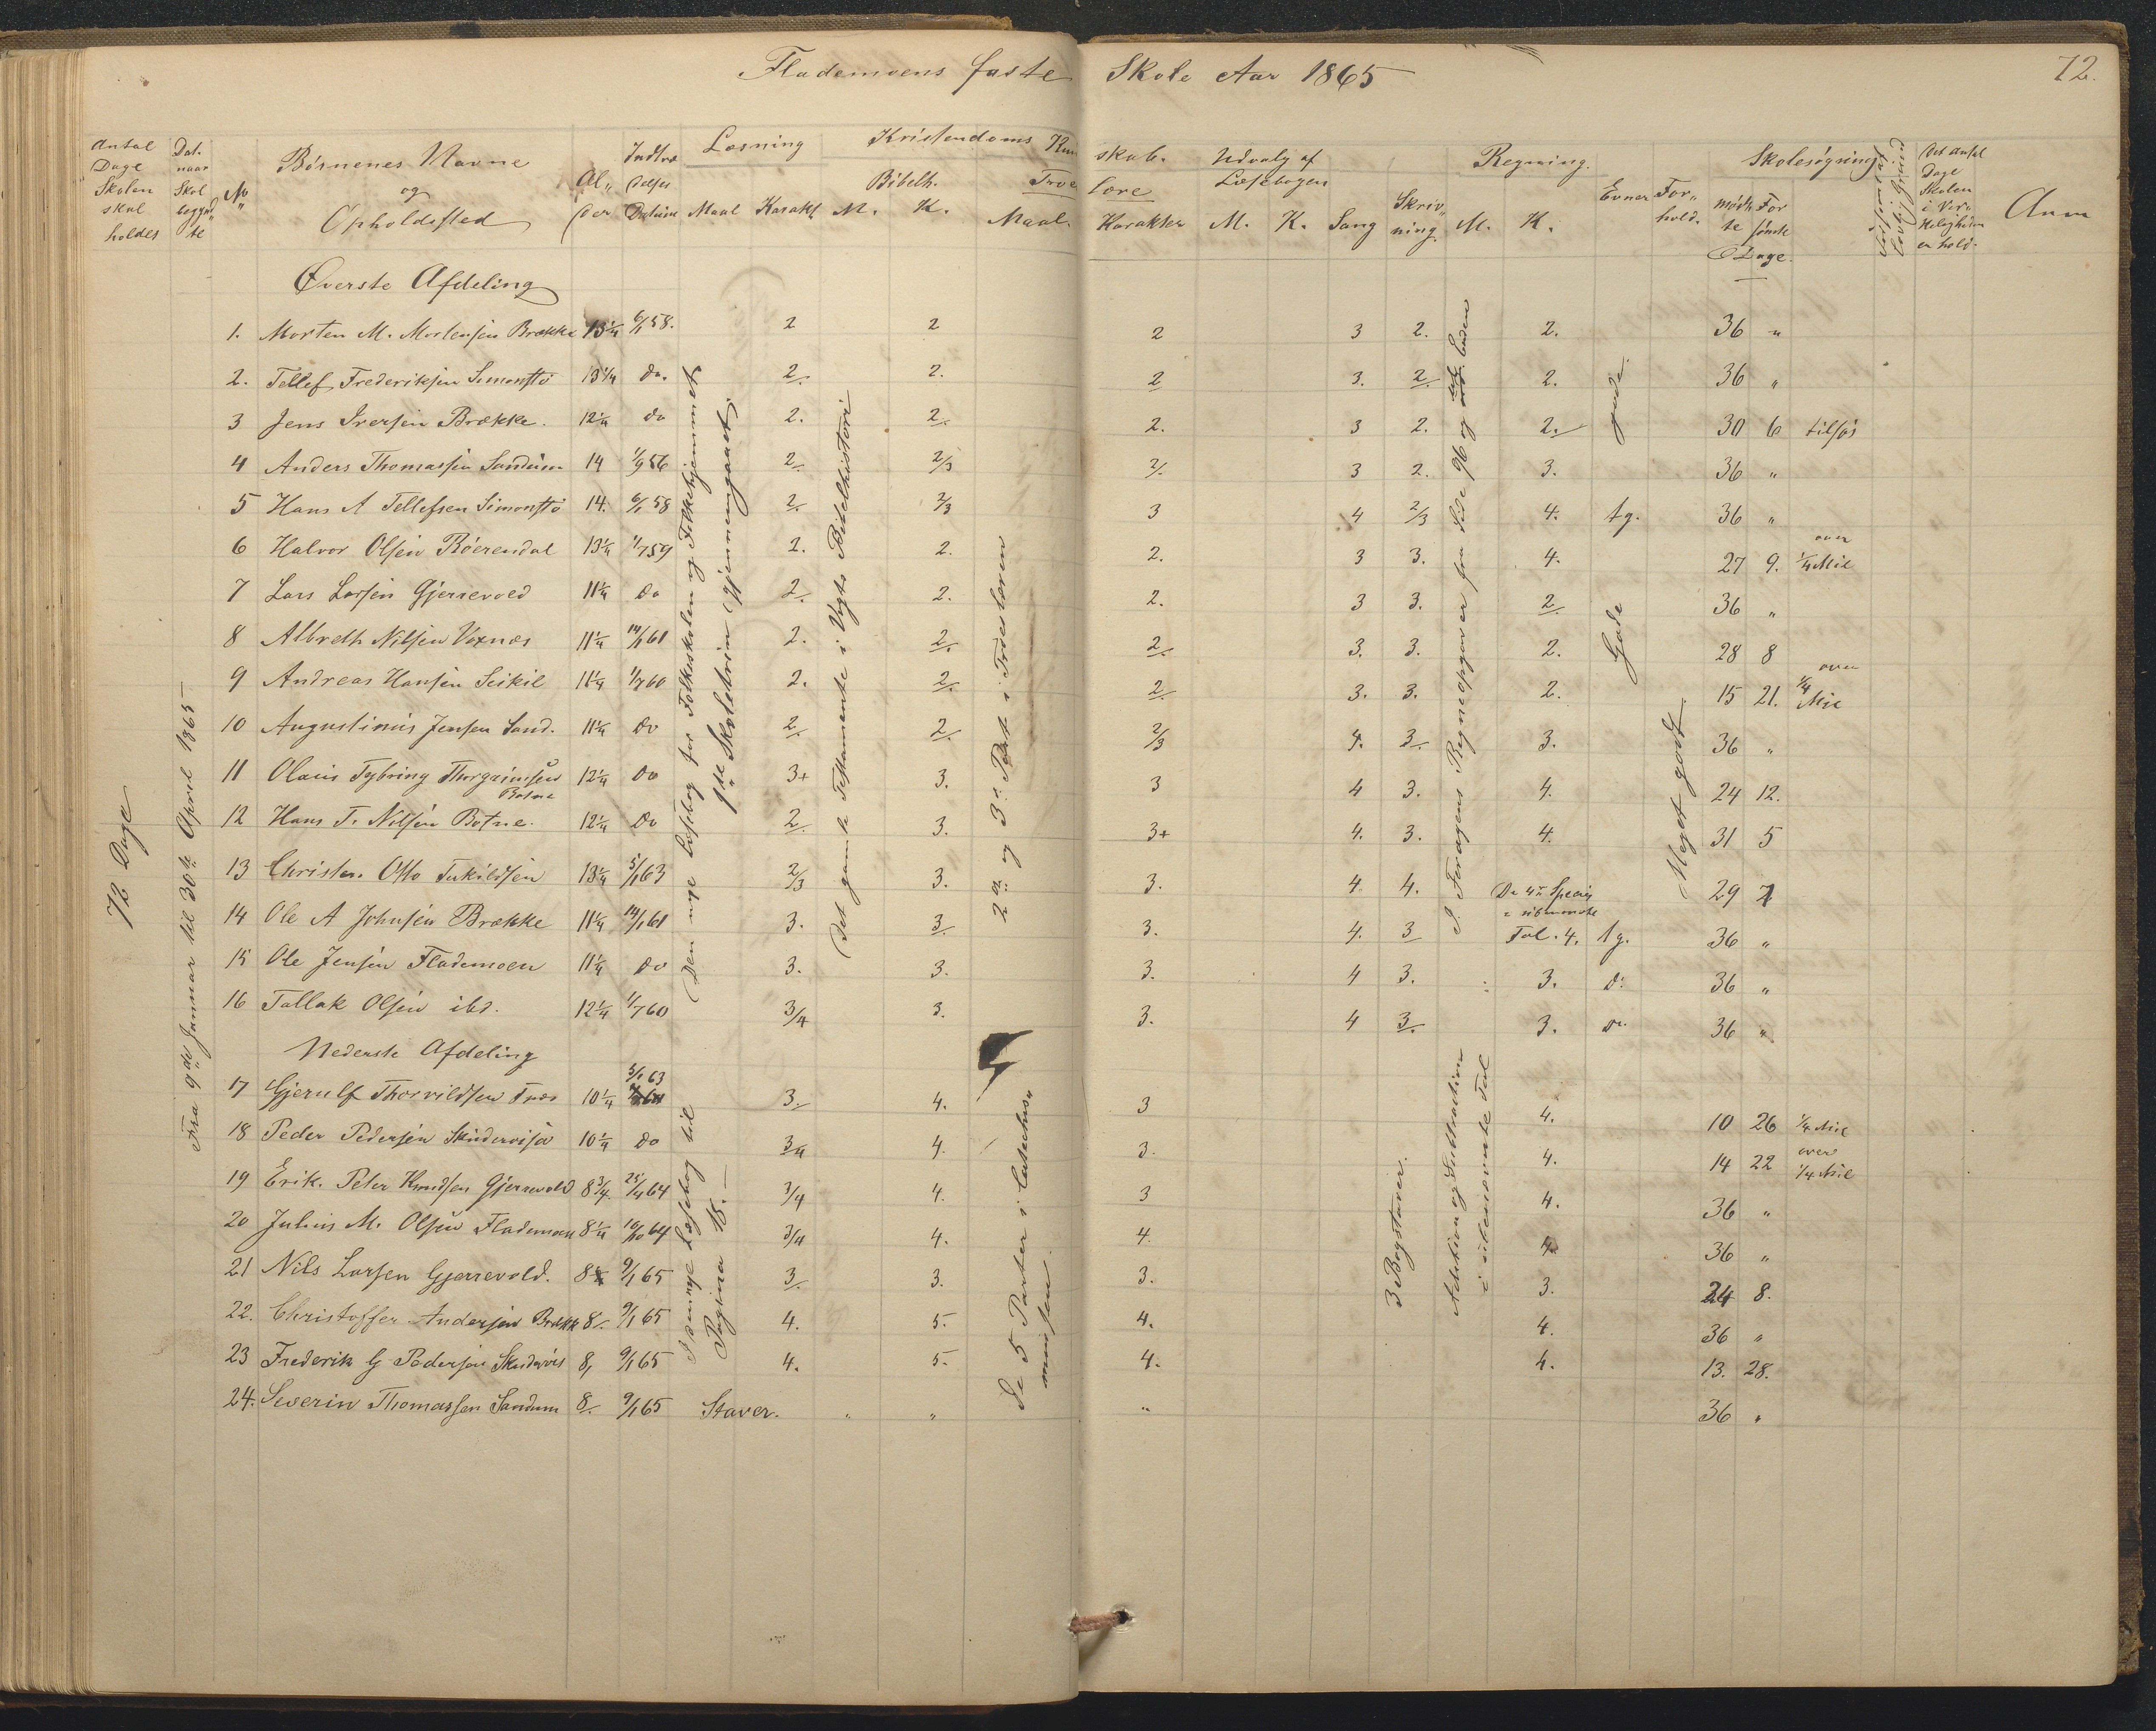 Flademoens faste Skole Aar 1865
72.
Antal Dage Skolen skal holdes
Dat. naar Skol begynd„te
No
Børnenes Navne og Opholdssted
Al„der
Indtræ delses Datum
Læsning
Maal Karakt.
Kristendoms Kundskab.
Bibelh.
M. K.
Troeslære
Maal. Karakter
Udvalg af Læsebogen
M. K.
Sang
Skriv„ning.
Regning.
M. K.
Evner
For„hold.
Skolesøgning
mødte Forsømte
Dage.
Det Antal Dage Skolen i Vir„keligheden er hold.
Anm
72 Dage
Fra 9de Januar til 30te April 1865
Øverste Afdeling
1. Morten M. Mortensen Brække 13¼ 6/1 58. 2 2 2 3 2. 2. 36 „
2. Tellef Frederiksen Simonstø 13¼ do. 2. 2. 2 3. 2. 2. 36 „
3 Jens Iversen Brække. 12¼ do 2. 2. 2. 3 2. 2. 30 6 tilsøs
4 Anders Thomassen Sandum 14 1/9 56 2. 2/3 2. 3 2. 3. 36 „
5 Hans A Tellefsen Simonstø 14. 6/1 58 2. 2/3 3 4 2/3 4. tg. 36 „
6 Halvor Olsen Røerendal 13¼ 1/7 59 2. 2. 2. 3 3. 4. 27 9. over ¼ Mil
7 Lars Larsen Gjerrevold 11¼ do 2. 2. 2. 3 3. 2. 36 „
8 Albreth Nilsen Voxnæs 11¼ 14/1 61 2. 2. 2. 3. 3. 2. 28 8
9 Andreas Hansen Seikil 11¼ 1/7 60 2. 2. 2. 3. 3. 2. 15 21. over ¼ Mil
10 Augustinus Jensen Sand. 11¼ do 2. 2. 2/3 4. 3. 3. 36 „
11 Olaus Tybring Thorgrimsen Botne 12¼ do 3+ 3. 3 4 3. 4. 24 12.
12 Hans T. Nilsen Botne. 12¼ do 2. 3. 3+ 4. 3. 4. 31 5
13 Christen Otto Terkildsen 13¼ 5/1 63 2/3 3. 3. 4 4. De 4re Species i ubenævnte Tal. 4. 29 7
14 Ole A Johnsen Brække 11¼ 14/1 61 3. 3. 3. 4. 3 tg. 36 „
15 Ole Jensen Flademoen 11¼ do 3. 3. 3. 4 3. 3. do 36 „
16 Tallak Olsen ibd. 12¼ 1/7 60 3/4 3. 3. 4 3. 3. do 36 „
Den nye Læsebog for Folkeskolen og Folkehjemmet
1ste Skoletrin Gjennemgaaet.
Det gamle Testamente i Vogts Bibelhistori
2den og 3die Part i Troeslæren
I Foragens Regneopgaver fra Side 96 og ud. Enden
gode.
Gode
Meget godt
Nederste Afdeling
17 Gjerulf Thorvildsen Træe 10¼ 5/1 63 3. 4. 3 4. 10 26 ¼ Mil
18 Peder Pedersen Skudervisø 10¼ do 3/4 4. 3. 4. 14 22 over ¼ Mil
19 Erik. Peter Knudsen Gjerrevold 8¾. 25/4 64 3/4 4. 3 4. 36 „
20 Julius M. Olsen Flademoen 8¼ 10/10 64 3/4 4. 4. 4. 36 „
21 Nils Larsen Gjerrevold. 8¼ 9/1 65 3. 3. 3. 3. 24 8.
22. Christoffer Andersen Brække 8. 9/1 65 4. 5. 4. 4. 36 „
23 Frederik G Pedersen Skudervis 8, 9/1 65 4. 5. 4. 4. 13. 28.
24. Severin Thomassen Sandum 8. 9/1 65 Staver. „ „ „ 36 „
I den nye Læsebog til Pagina 18.
De 5 Parter i Catechis„mussen
3 Bogstaver.
Addition og Subtraktion i ubenævnte Tal